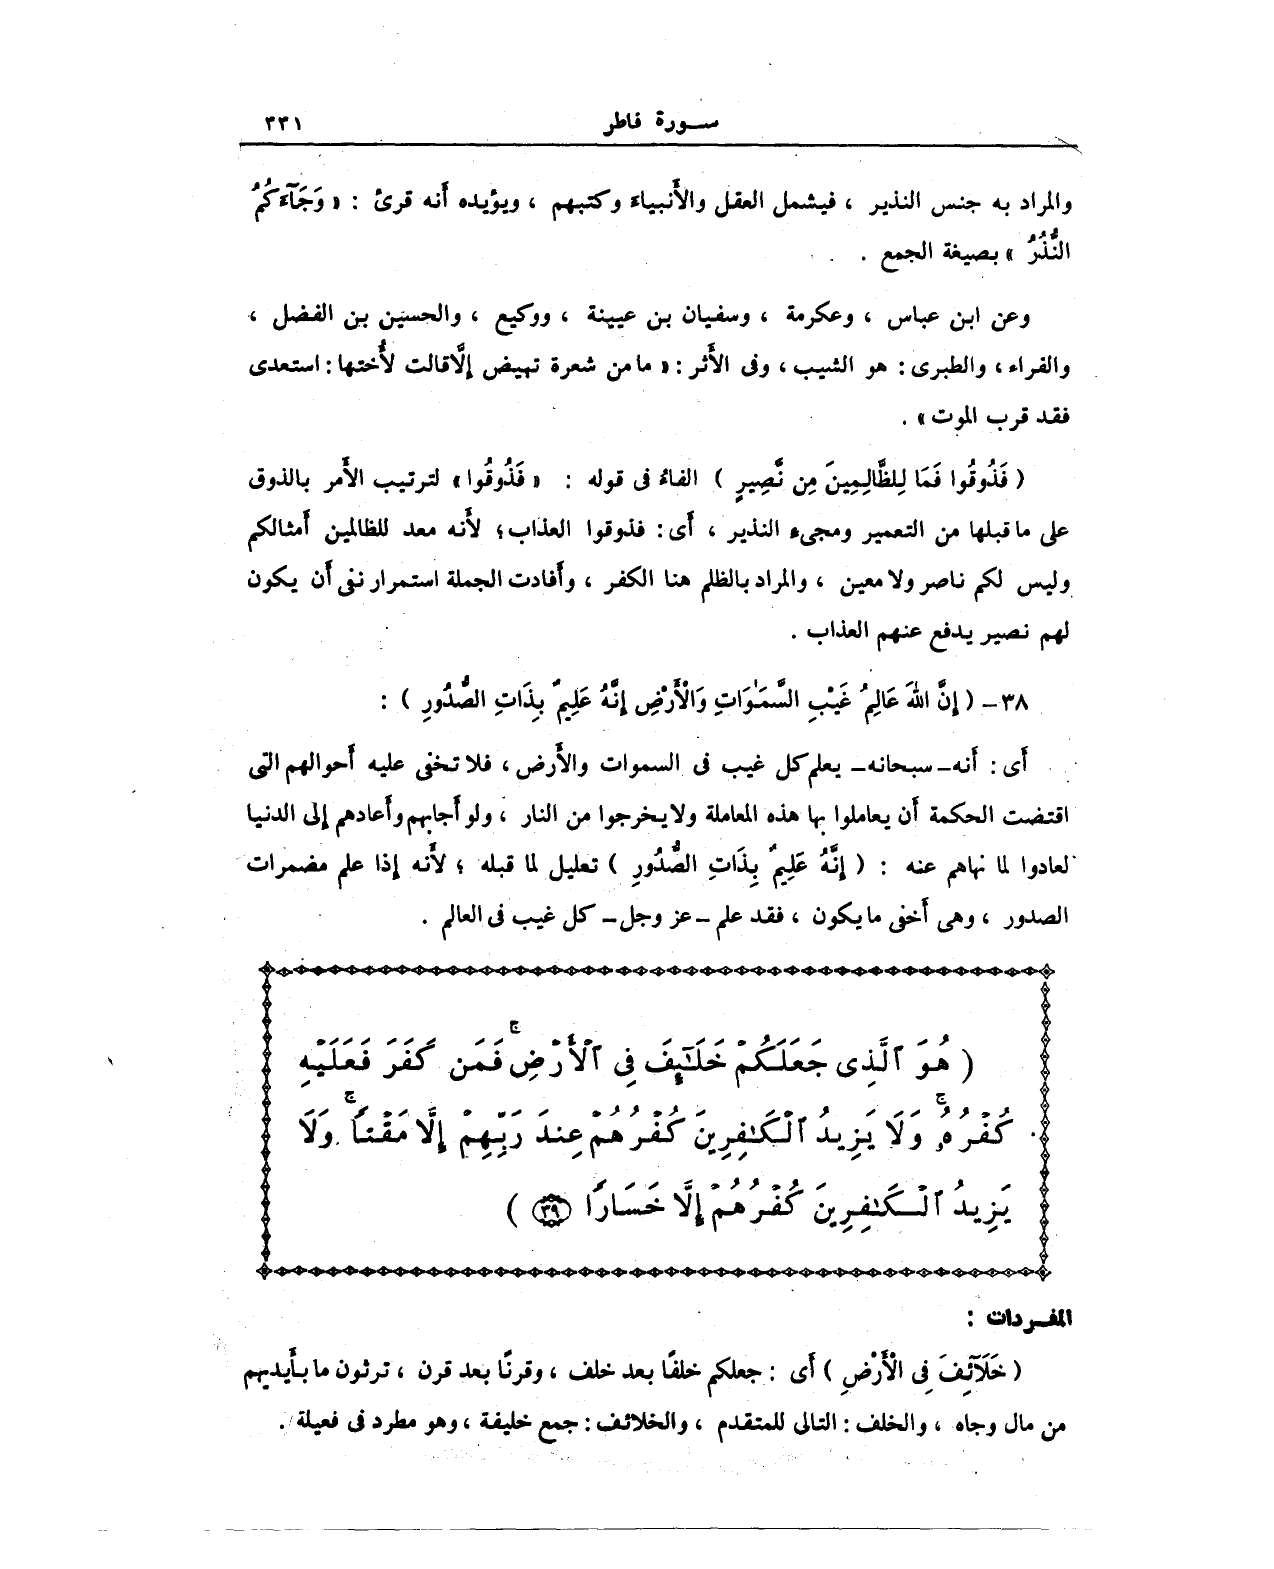 سـورة فاطر ٣٣١
والمراد به جنس النذير ، فيشمل العقل والأنبياء وكتبهم ، ويؤيده أنه قرئ : « وَجَآءَكُمُ
النُّذُرُ » بصيغة الجمع .
وعن ابن عباس ، وعكرمة ، وسفيان بن عيينة ، ووكيع ، والحسين بن الفضل ،
والفراء ، والطبرى : هو الشيب ، وفى الأثر : « ما من شعرة تبيض إلَّا قالت لأُختها : استعدى
فقد قرب الموت » .
( فَذُوقُوا فَمَا لِلظَّالِمِينَ مِن نَّصِيرٍ ) الفاءُ فى قوله : « فَذُوقُوا » لترتيب الأمر بالذوق
على ما قبلها من التعمير ومجىء النذير ، أى : فذوقوا العذاب ؛ لأنه معد للظالمين أمثالكم
وليس لكم ناصر ولا معين ، والمراد بالظلم هنا الكفر ، وأفادت الجملة استمرار نفى أن يكون
لهم نصير يدفع عنهم العذاب .
٣٨ – ( إِنَّ اللهَ عَالِمُ غَيْبِ السَّمَٰوَاتِ وَالْأَرْضِ إِنَّهُ عَلِيمٌ بِذَاتِ الصُّدُورِ ) :
أى : أنه – سبحانه – يعلم كل غيب فى السموات والأرض ، فلا تخفى عليه أحوالهم التى
اقتضت الحكمة أن يعاملوا بها هذه المعاملة ولا يخرجوا من النار ، ولو أجابهم وأعادهم إلى الدنيا
لعادوا لما نهاهم عنه : ( إِنَّهُ عَلِيمٌ بِذَاتِ الصُّدُورِ ) تعليل لما قبله ؛ لأنه إذا علم مضمرات
الصدور ، وهى أخفى ما يكون ، فقد علم – عز وجل – كل غيب فى العالم .
( هُوَ ٱلَّذِى جَعَلَكُمْ خَلَٰٓئِفَ فِى ٱلْأَرْضِ ۚ فَمَن كَفَرَ فَعَلَيْهِ
كُفْرُهُۥ ۚ وَلَا يَزِيدُ ٱلْكَٰفِرِينَ كُفْرُهُمْ عِندَ رَبِّهِمْ إِلَّا مَقْتًا ۚ وَلَا
يَزِيدُ ٱلْكَٰفِرِينَ كُفْرُهُمْ إِلَّا خَسَارًا ٣٩ )
المفـردات :
( خَلَآئِفَ فِى الْأَرْضِ ) أى : جعلكم خلفًا بعد خلف ، وقرنًا بعد قرن ، ترثون ما بأيديهم
من مال وجاه ، والخلف : التالى للمتقدم ، والخلائف : جمع خليفة ، وهو مطرد فى فعيلة .